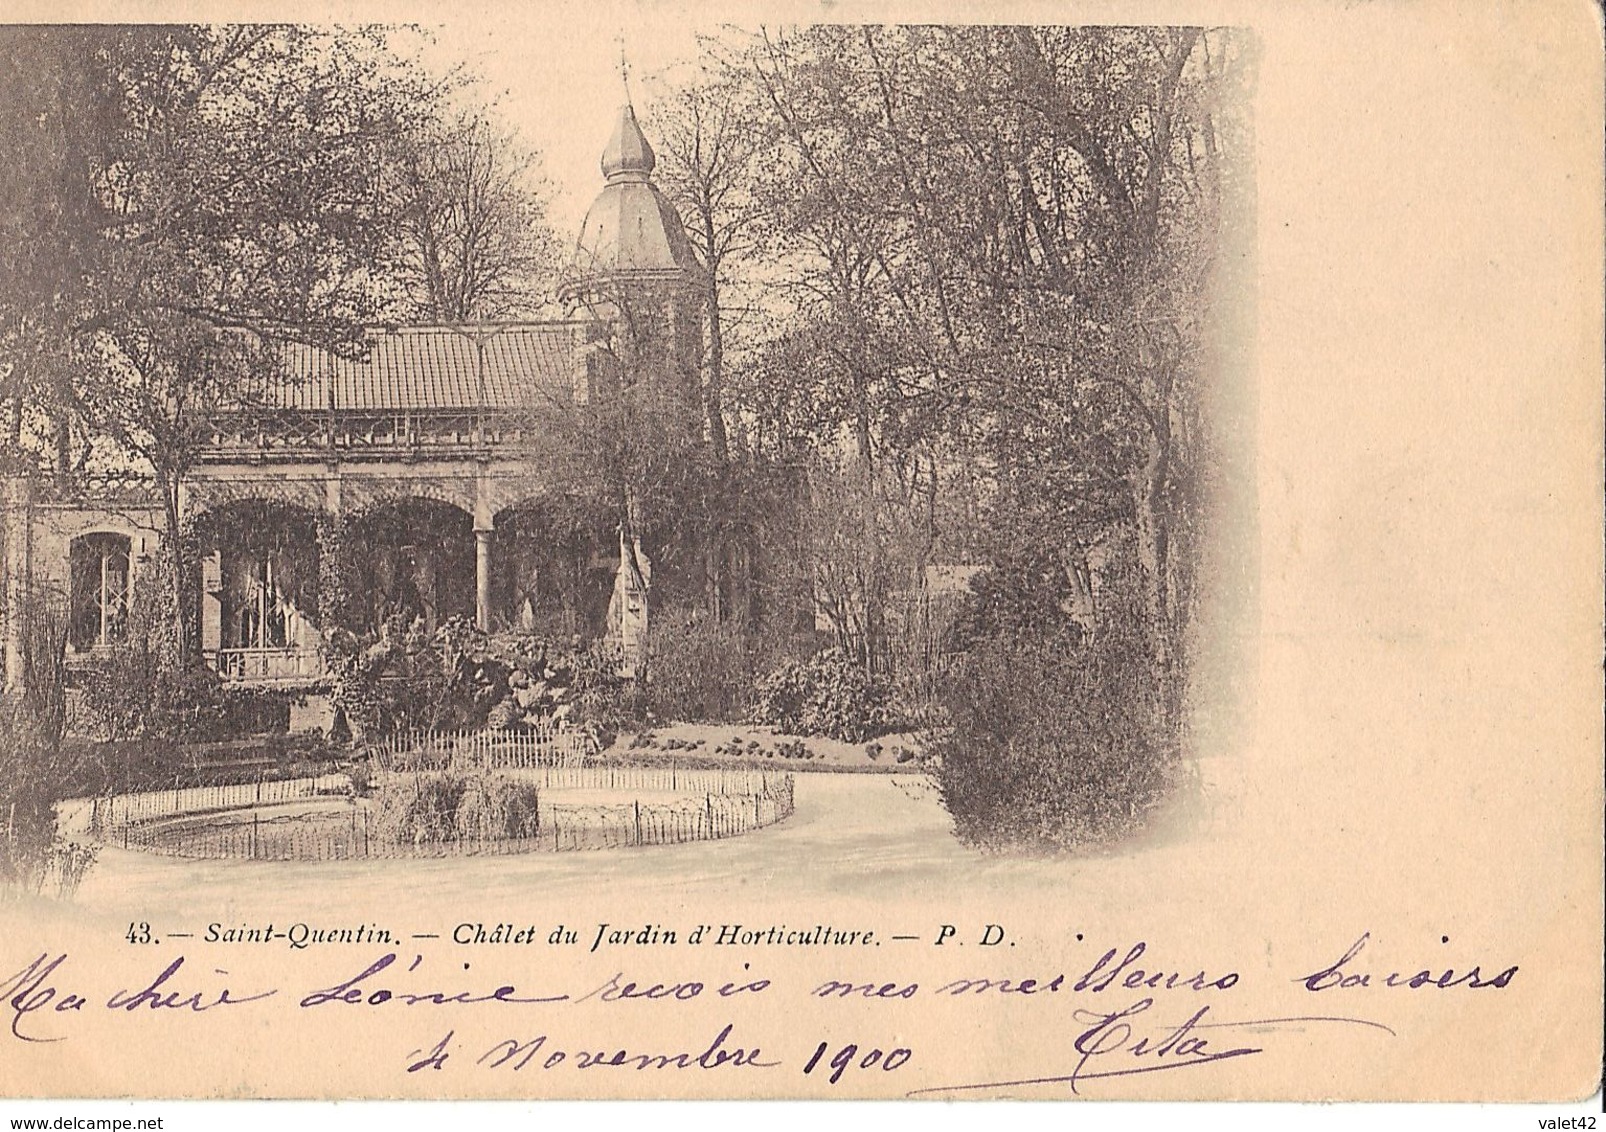 43. — Saint-Quentin. — Châlet du Jardin d'Horticulture. — P. D.
Ma chère Léonie reçois mes meilleurs baisers
4 Novembre 1900 Tita
www.delcampe.net
valet42